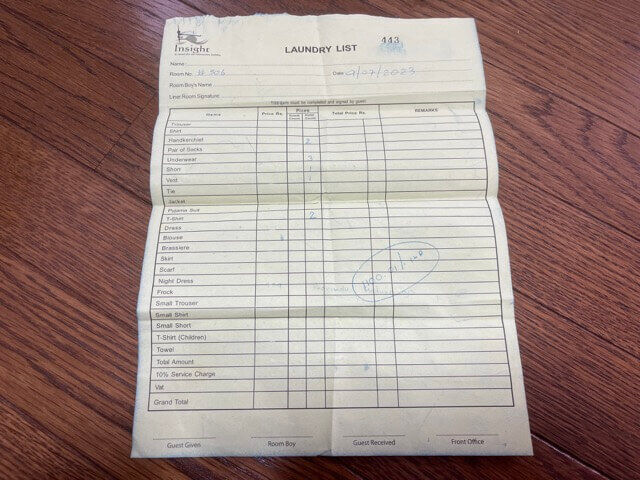 Insight
LAUNDRY LIST
443
Name
Room No. # 506
Date 9/07/2023
Room Boy's Name
Linen Room Signature
This form must be completed and signed by guest
Items Price Rs. Pices Total Price Rs. REMARKS
Guest Count Hotel Count
Trouser
Shirt
Handkerchief 2
Pair of Socks
Underwear 3
Short 1
Vest 1
Tie
Jacket
Pyjama Suit
T-Shirt 2
Dress
Blouse
Brassiere
Skirt
Scarf
Night Dress
Frock
Small Trouser
Small Shirt
Small Short
T-Shirt (Children)
Towel
Total Amount
10% Service Charge
Vat
Grand Total
Guest Given Room Boy Guest Received Front Office